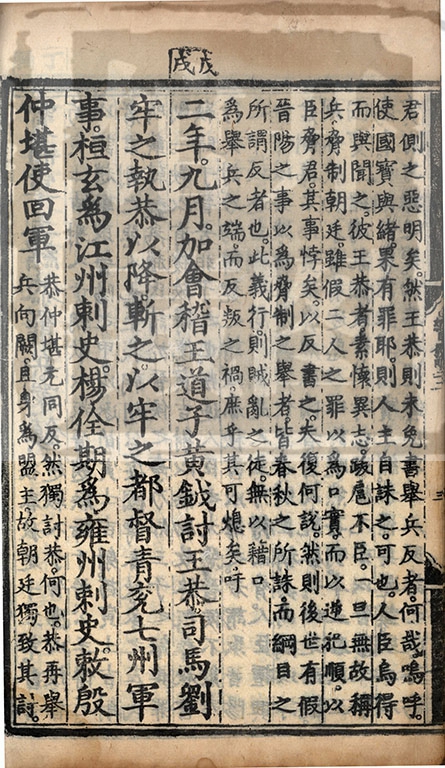 戊戌
君側之惡明矣。然王恭則未免書舉兵反者。何哉。嗚呼。
使國寶與緒。果有罪耶。則人主自誅之。可也。人臣烏得
而與聞之。彼王恭者素懷異志。跋扈不臣。一旦無故稱
兵脅制朝廷。雖假二人之罪以爲口實。而以逆犯順。以
臣脅君。其事悖矣。以反書之。夫復何說。然則後世有假
晉陽之事以爲脅制之舉者。皆春秋之所誅。而綱目之
所謂反者也。此義行。則賊亂之徒。無以藉口
爲舉兵之端。而反叛之禍。庶乎其可熄矣。吁
二年。九月。加會稽王道子黃鉞討王恭。司馬劉
牢之執恭以降。斬之。以牢之都督青兗七州軍
事。桓玄爲江州刺史。楊佺期爲雍州刺史。敕殷
仲堪使回軍
恭仲堪元同反。然獨討恭何也。恭再舉
兵向闕。且身爲盟主。故朝廷獨致其討。